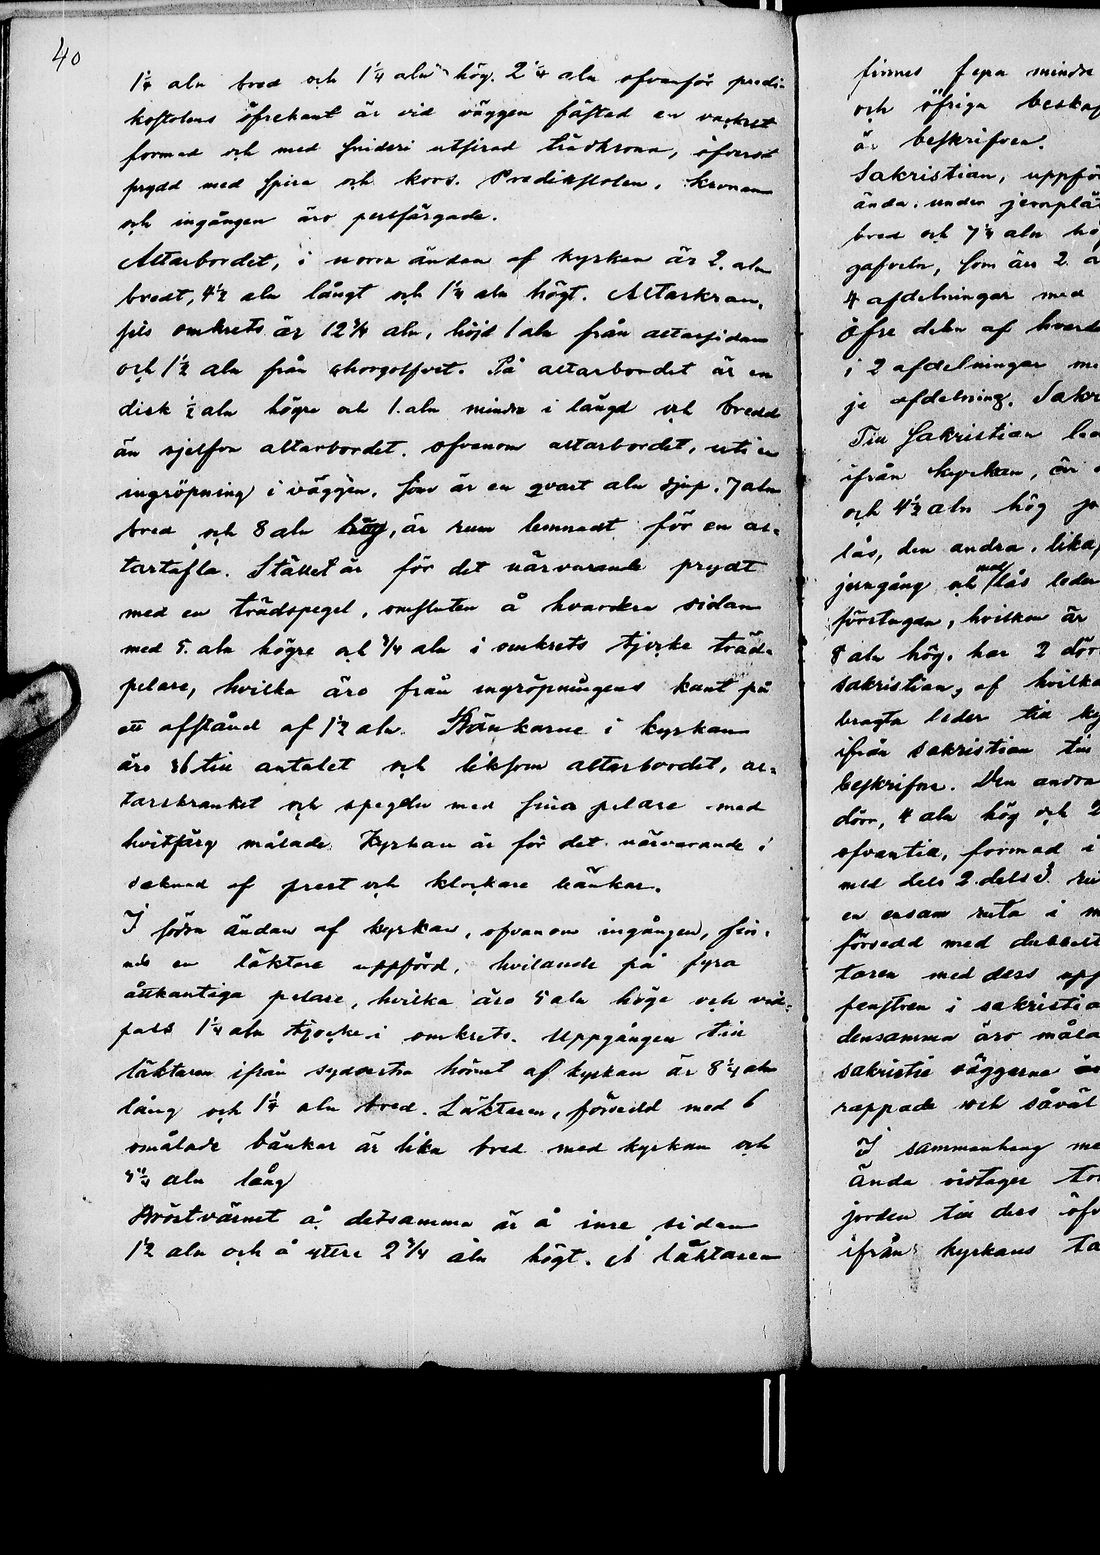 40
1¼ aln bred och 1¼ aln hög. 2¼ aln ofvanför predi-
kostolens öfrekant är vid väggen fästad en vackert
formad och med snideri utsirad trädkrona, öfverst
prydd med spira och kors. Predikstolen, kronan
och ingången äro perlfärgade.
Altarbordet, i norra ändan af kyrkan är 2. aln
bredt, 4½ aln långt och 1¼ aln högt. Altarkran-
sels omkrets är 12¼ aln, höjd 1 aln från altarsidan
och 1½ aln från chorgolfvet. På altarbordet är en
disk ½ aln högre och 1. aln mindre i längd och bredd
än sjelfva altarbordet. Ofvanom altarbordet, uti en
ingröpning i väggen, som är en qvart aln djup, 7 aln
bred och 8 aln hög, är rum lemnadt för en al-
tartafla. Stället är för det närvarande prydt
med en trädspegel, omsluten å hvardera sidan
med 5. aln högre och ¾ aln i omkrets tjocka träd-
pelare, hvilka äro från ingröpningens kant på
ett afstånd af 1½ aln. Bänkarne i kyrkan
äro till antalet och liksom altarbordet, al-
tarskranket och spegeln med sina pelare med
hvitfärg målade. Kyrkan är för det närvarande i
saknad af prest och klockare bänkar.
I södra ändan af kyrkan, ofvanom ingången, fin-
nes en läktare uppförd, hvilande på fyra
åttkantiga pelare, hvilka äro 5 aln höga och vid-
pass 1¼ aln tjocke i omkrets. Uppgången till
läktaren ifrån sydöstra hörnet af kyrkan är 8¼ aln
lång och 1¼ aln bred. Läktaren, försedd med 6
omålade bänkar är lika bred med kyrkan och
aln lång
Bröstvärnet å detsamma är å inre sidan
1½ aln och å yttre 2¾ aln högt. A läktaren
finnes fyra mindre
och öfriga beskaf
är beskrifven.
Sakristian, uppför
ända, under jernplåt
bred och 7¼ aln hö
gafveln, som äro 2 a
4 afdelningar med
öfre delen af hvard
i 2 afdelningar me
je afdelning. Sakr
Till Sakristian led
ifrån kyrkan, är
och 4½ aln hög
lås, den andra, lika,
jerngång och med lås leder
företagen, hvilken är
8 aln hög, har 2 dör
sakristian, af hvilka
bragta leder till ky
ifrån sakristian till
beskrifne. Den andra
dörr, 4 aln hög och 2
ofvantill, formad i
med dels 2 dels 3 ru
en ensam ruta i m
försedd med dubbelt
taren med dess upp
fenstren i sakristia
densamma äro måla
sakristie väggarne är
rappade och såväl
I sammanhang me
ända vidtager tor
jorden till dess öfv
ifrån kyrkans ta